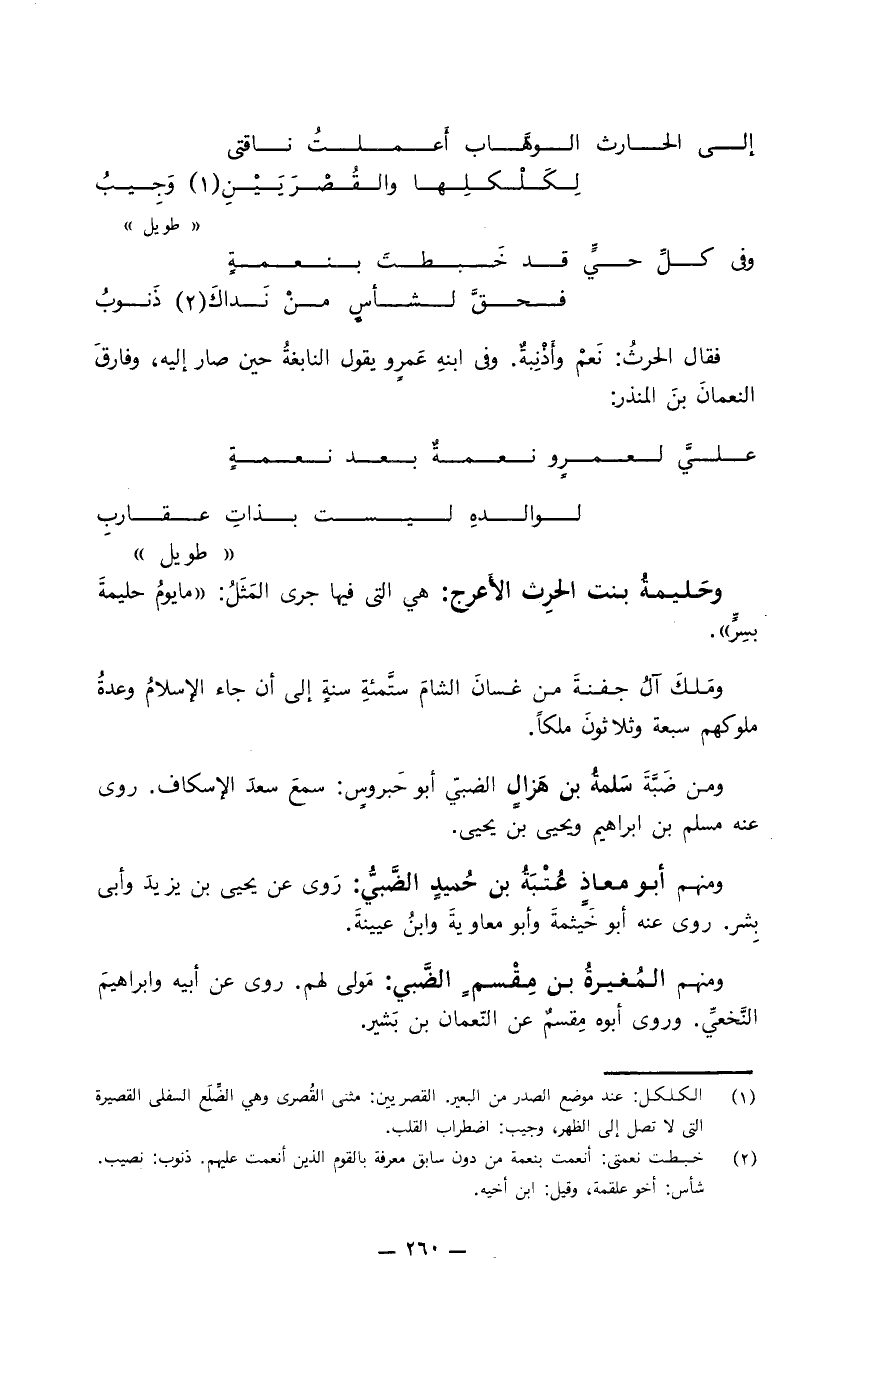 إلى الحارث الوهَّاب أَعملتُ ناقتي
لِكَلْكلِها والقُصْرَيَيْنِ(١) وَجِيبُ
« طويل »
وفى كلِّ حيٍّ قد خَبطتَ بنعمةٍ
فحقَّ لشأسٍ منْ نَداكَ(٢) ذَنوبُ
فقال الحرثُ: نَعمْ وأَذْنِبةٌ. وفى ابنهِ عَمرٍو يقول النابغةُ حين صار إليه، وفارقَ
النعمانَ بنَ المنذر:
عليَّ لعمرٍو نعمةٌ بعد نعمةٍ
لوالدهِ ليست بذاتِ عقاربِ
« طويل »
وحَليمةُ بنت الحرِث الأعرج: هي التى فيها جرى المَثَلُ: «مايومُ حليمةَ
بسِرٍّ».
ومَلكَ آلُ جفنةَ من غسانَ الشامَ ستَّمئةِ سنةٍ إلى أن جاء الإسلامُ وعدةُ
ملوكهم سبعة وثلاثونَ ملكاً.
ومن ضَبَّةَ سَلمةُ بن هَزالٍ الضبيّ أبو حَبروسٍ: سمعَ سعدَ الإسكاف. روى
عنه مسلم بن ابراهيم ويحيى بن يحيى.
ومنهم أبو معاذٍ عُتْبَةُ بن حُميدٍ الضَّبيُّ: رَوى عن يحيى بن يزيدَ وأبى
بِشر. روى عنه أبو خَيثمةَ وأبو معاويةَ وابنُ عيينةَ.
ومنهم المُغيرةُ بن مِقْسمٍ الضَّبي: مَولى لهم. روى عن أبيه وابراهيمَ
النَّخعيِّ. وروى أبوه مِقسمٌ عن النّعمان بن بَشير.
(١) الكلكل: عند موضع الصدر من البعير. القصريين: مثنى القُصرى وهي الضِّلَع السفلى القصيرة
التى لا تصل إلى الظهر، وجيب: اضطراب القلب.
(٢) خبطت نعمتى: أنعمت بنعمة من دون سابق معرفة بالقوم الذين أنعمت عليهم. ذنوب: نصيب.
شأس: أخو علقمة، وقيل: ابن أخيه.
— ٢٦٠ —